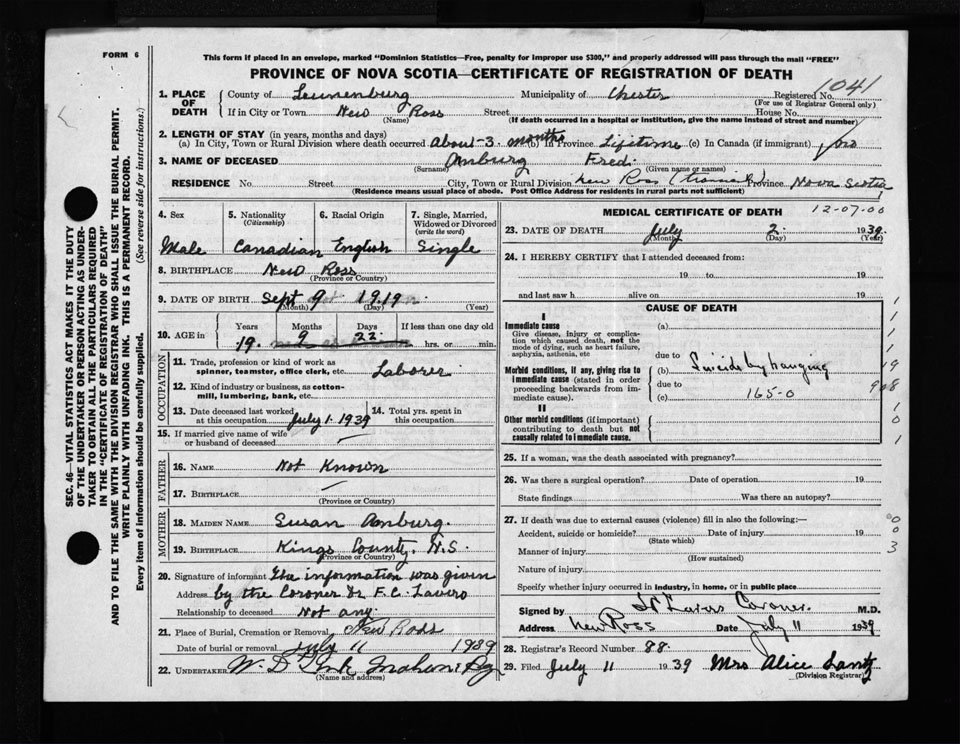 FORM 6
This form if placed in an envelope, marked "Dominion Statistics—Free, penalty for improper use $300," and properly addressed will pass through the mail "FREE"
PROVINCE OF NOVA SCOTIA—CERTIFICATE OF REGISTRATION OF DEATH
1041
1. PLACE OF DEATH County of Lunenburg Municipality of Chester Registered No.
(For use of Registrar General only)
If in City or Town New Ross Street House No.
(Name) (If death occurred in a hospital or institution, give the name instead of street and number)
2. LENGTH OF STAY (in years, months and days)
(a) In City, Town or Rural Division where death occurred About - 3 months (b) In Province Lifetime (c) In Canada (if immigrant)
3. NAME OF DECEASED Amburg Fred.
(Surname) (Given name or names)
RESIDENCE No. Street City, Town or Rural Division New Ross (transient) Province Nova Scotia
(Residence means usual place of abode. Post Office Address for residents in rural parts not sufficient)
SEC. 46—VITAL STATISTICS ACT MAKES IT THE DUTY
OF THE UNDERTAKER OR PERSON ACTING AS UNDER-
TAKER TO OBTAIN ALL THE PARTICULARS REQUIRED
IN THE "CERTIFICATE OF REGISTRATION OF DEATH"
AND TO FILE THE SAME WITH THE DIVISION REGISTRAR WHO SHALL ISSUE THE BURIAL PERMIT.
WRITE PLAINLY WITH UNFADING INK. THIS IS A PERMANENT RECORD.
Every item of information should be carefully supplied. (See reverse side for instructions.)
4. Sex 5. Nationality (Citizenship) 6. Racial Origin 7. Single, Married, Widowed or Divorced (write the word)
Male Canadian English Single
8. BIRTHPLACE New Ross
(Province or County)
9. DATE OF BIRTH Sept 9 1919
(Month) (Day) (Year)
10. AGE in Years Months Days If less than one day old
19. 9 22 hrs. or min.
OCCUPATION
11. Trade, profession or kind of work as spinner, teamster, office clerk, etc. Laborer
12. Kind of industry or business, as cotton-mill, lumbering, bank, etc.
13. Date deceased last worked at this occupation July 1. 1939 14. Total yrs. spent in this occupation
15. If married give name of wife or husband of deceased
FATHER
16. NAME Not Known
17. BIRTHPLACE
(Province or Country)
MOTHER
18. MAIDEN NAME Susan Amburg.
19. BIRTHPLACE Kings County, N.S.
(Province or Country)
20. Signature of informant The information was given
Address by the Coroner Dr F. C. Lavers
Relationship to deceased Not any.
21. Place of Burial, Cremation or Removal New Ross
Date of burial or removal July 11 1939
22. UNDERTAKER W. D.
(Name and address)
MEDICAL CERTIFICATE OF DEATH 12-07-00
23. DATE OF DEATH July 2. 1939.
(Month) (Day) (Year)
24. I HEREBY CERTIFY that I attended deceased from:
19 to 19
and last saw h alive on 19
CAUSE OF DEATH
I
Immediate cause (a)
Give disease, injury or complica-
tion which caused death, not the
mode of dying, such as heart failure,
asphyxia, asthenia, etc
due to
Morbid conditions, if any, giving rise to
immediate cause (stated in order
proceeding backwards from im-
mediate cause).
(b) Suicide by hanging
due to
(c) 165-0
908
II
Other morbid conditions (if important)
contributing to death but not
causally related to immediate cause.
25. If a woman, was the death associated with pregnancy?
26. Was there a surgical operation? Date of operation 19
State findings Was there an autopsy?
27. If death was due to external causes (violence) fill in also the following:—
Accident, suicide or homicide? Date of injury 19
(State which)
Manner of injury
(How sustained)
Nature of injury
Specify whether injury occurred in industry, in home, or in public place
Signed by Lavers Coroner. M.D.
Address New Ross Date July 11 1939
28. Registrar's Record Number 88.
29. Filed July 11 1939 Mrs Alice Lantz
(Division Registrar)